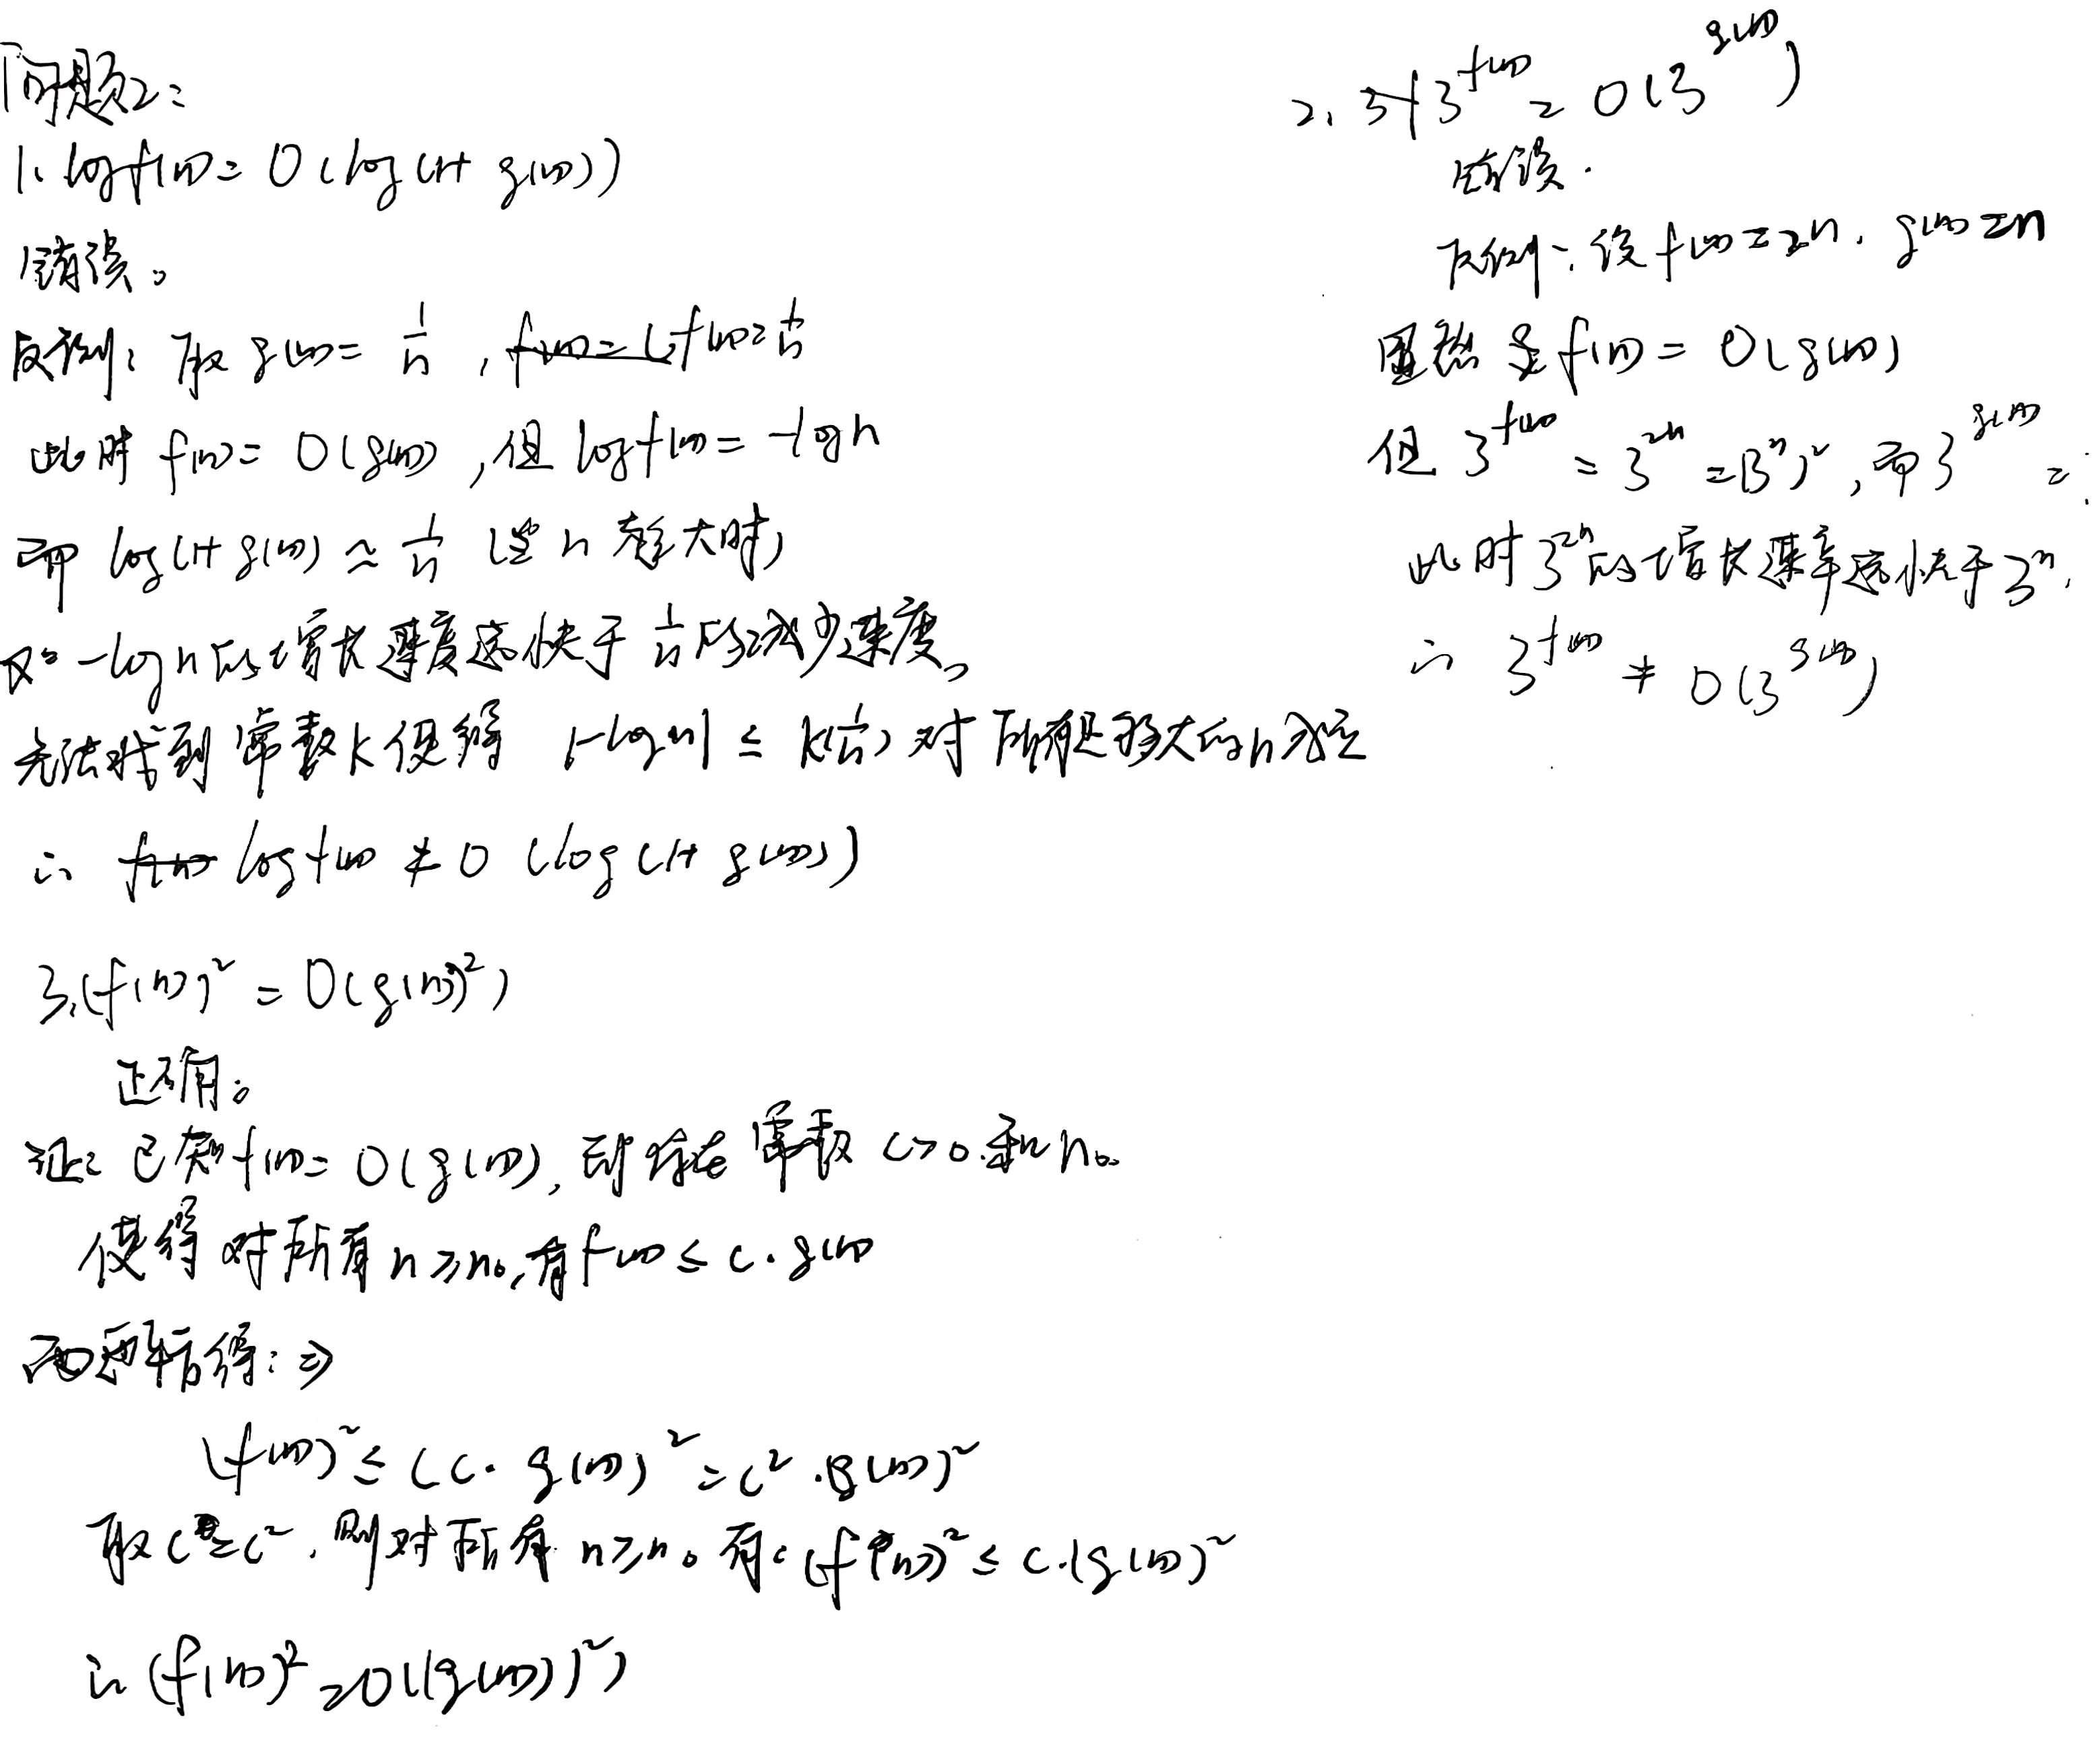 问题2:
1. log f(n) = O(log(1+ g(n)))
错误。
反例: 取 g(n) = 1/n , f(n) = 1/n
此时 f(n) = O(g(n)) , 但 log f(n) = -log n
而 log(1+ g(n)) ≈ 1/n (当 n 够大时)
-log n 的增长速度远快于 1/n 的减少速度。
无法找到常数 k 使得 |-log n| ≤ k(1/n) 对所有足够大的 n 成立
∴ log f(n) ≠ O (log (1+ g(n)))
3. (f(n))² = O(g(n))²)
正确。
证: 已知 f(n) = O(g(n)), 即存在常数 c>0 和 n₀
使得对所有 n ≥ n₀, 有 f(n) ≤ c · g(n)
两边平方得: ⇒
(f(n))² ≤ (c · g(n))² = c² · (g(n))²
取 c = c², 则对所有 n ≥ n₀ 有: (f(n))² ≤ c · (g(n))²
∴ (f(n))² = O((g(n))²)
2. 3^f(n) = O(3^g(n))
错误.
反例: 设 f(n) = 2n, g(n) = n
虽然 f(n) = O(g(n))
但 3^f(n) = 3^2n = (3^n)², 而 3^g(n) =
此时 3^2n 的增长速率远快于 3^n,
∴ 3^f(n) ≠ O(3^g(n))